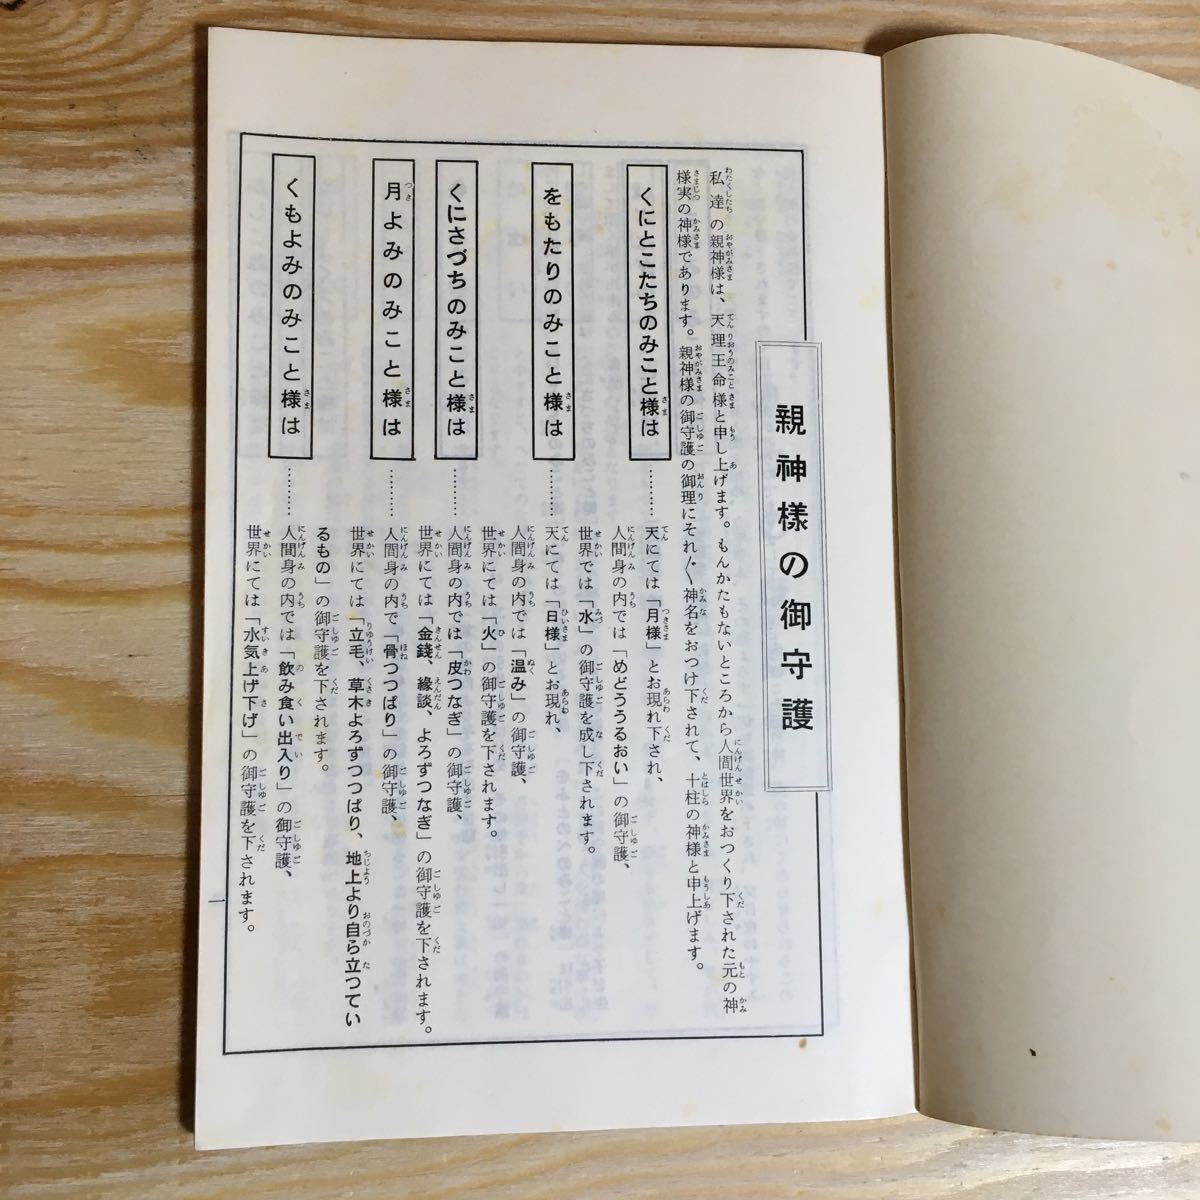 親神様の御守護
私達の親神様は、天理王命様と申し上げます。もんかたもないところから人間世界をおつくり下された元の神
様実の神様であります。親神様の御守護の御理にそれ〴〵神名をおつけ下されて、十柱の神様と申上げます。
くにとこたちのみこと様は………天にては「月様」とお現れ下され、
人間身の内では「めどううるおい」の御守護、
世界では「水」の御守護を成し下されます。
をもたりのみこと様は………天にては「日様」とお現れ、
人間身の内では「温み」の御守護、
世界にては「火」の御守護を下されます。
くにさづちのみこと様は………人間身の内では「皮つなぎ」の御守護、
世界にては「金錢、縁談、よろずつなぎ」の御守護を下されます。
月よみのみこと様は………人間身の内で「骨つっぱり」の御守護、
世界にては「立毛、草木よろずつっぱり、地上より自ら立つてい
るもの」の御守護を下されます。
くもよみのみこと様は………人間身の内では「飲み食い出入り」の御守護、
世界にては「水気上げ下げ」の御守護を下されます。
一